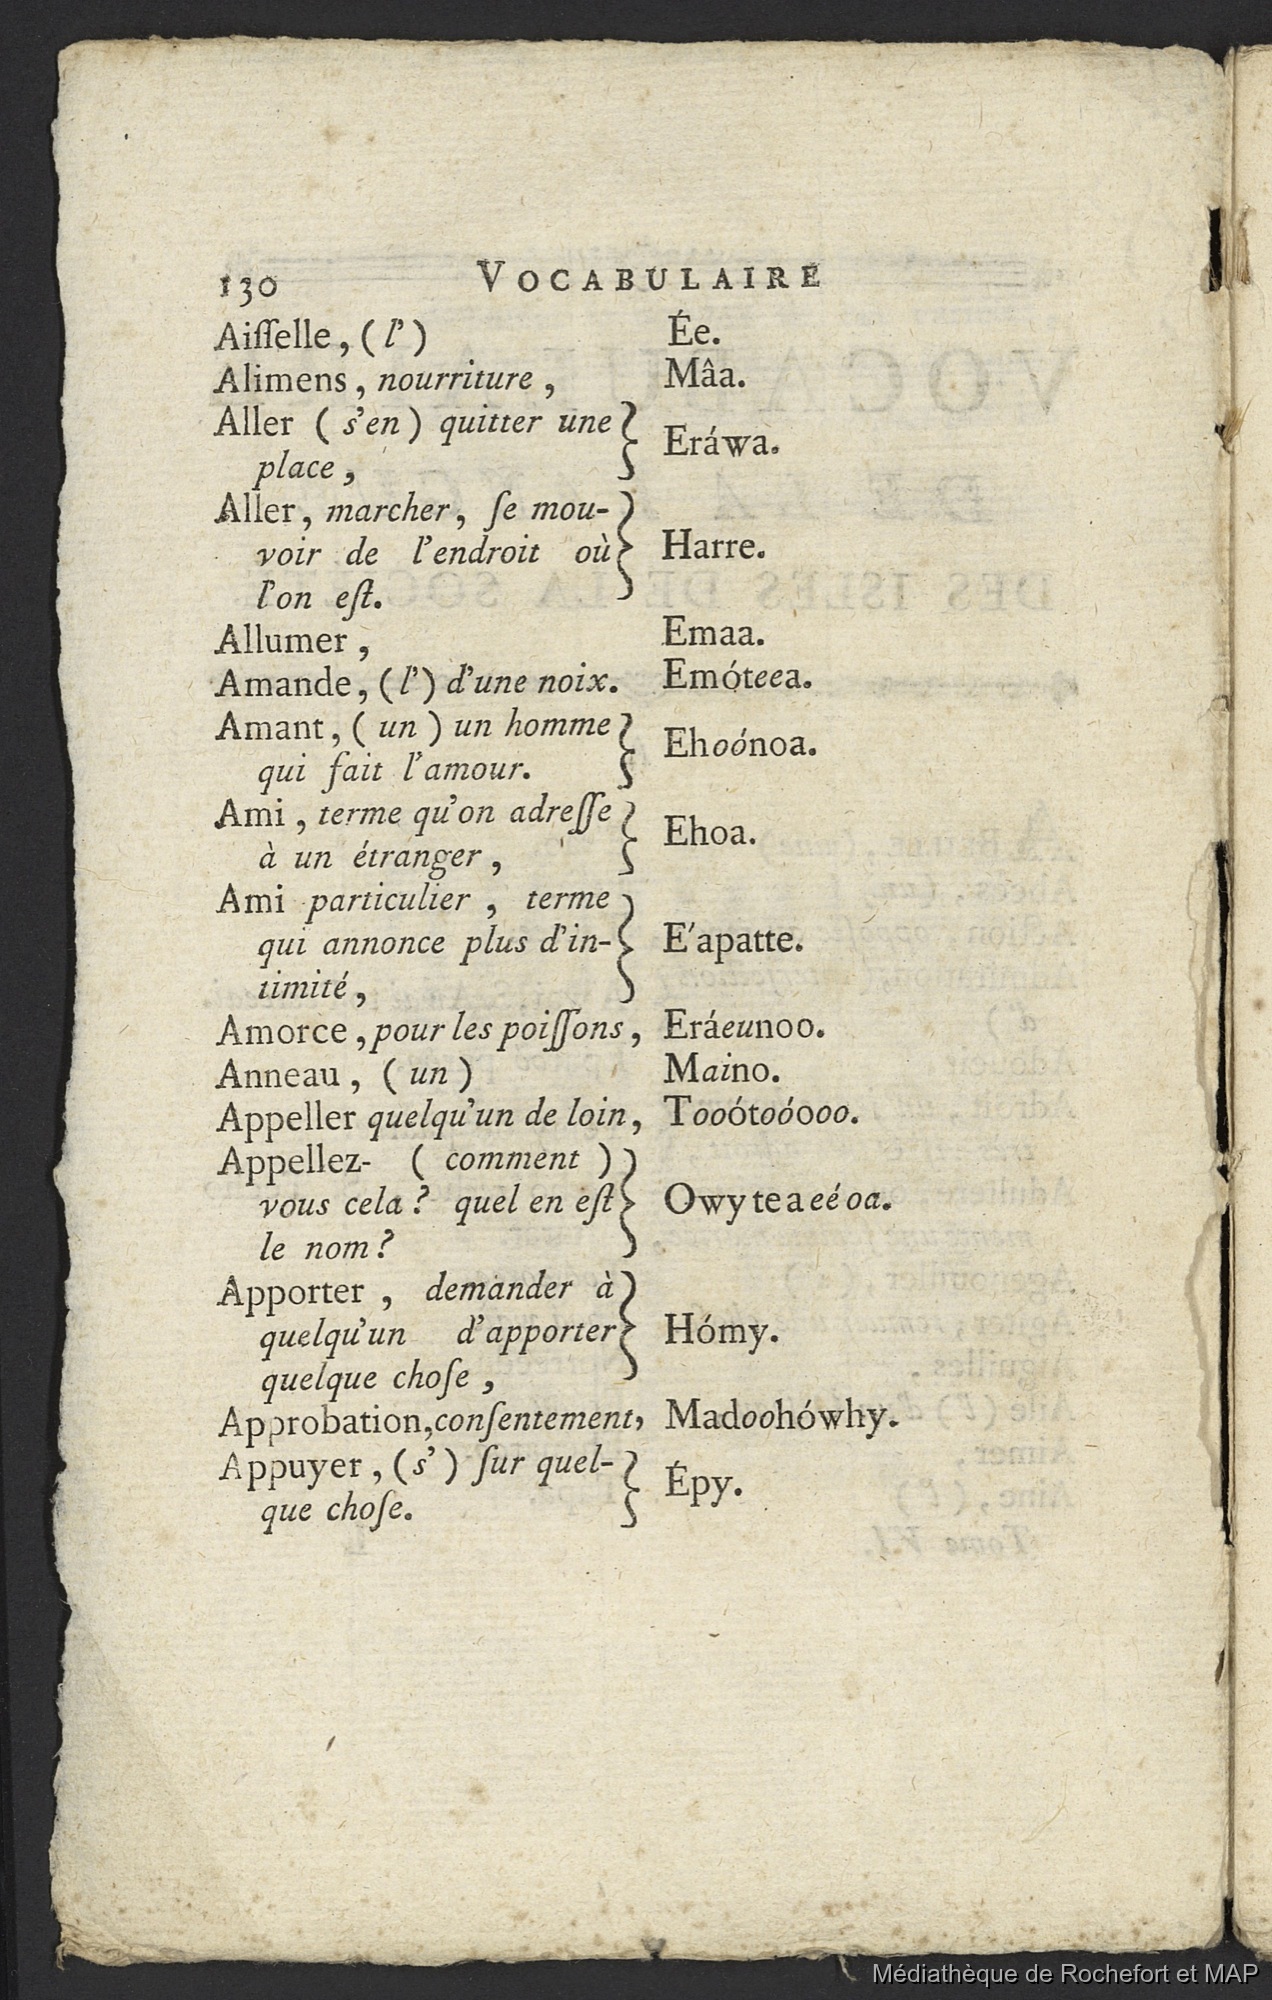 130 VOCABULAIRE
Aiſſelle, (l') Ée.
Alimens, nourriture, Mâa.
Aller (s'en) quitter une
place, } Eráwa.
Aller, marcher, ſe mou-
voir de l'endroit où } Harre.
l'on eſt.
Allumer, Emaa.
Amande, (l') d'une noix. Emóteea.
Amant, (un) un homme
qui fait l'amour. } Ehoónoa.
Ami, terme qu'on adreſſe
à un étranger, } Ehoa.
Ami particulier, terme
qui annonce plus d'in- } E'apatte.
timité,
Amorce, pour les poiſſons, Eráeunoo.
Anneau, (un) Maino.
Appeller quelqu'un de loin, Tooótoóooo.
Appellez- (comment)
vous cela? quel en eſt } Owy te a eé oa.
le nom?
Apporter, demander à
quelqu'un d'apporter } Hómy.
quelque choſe,
Approbation, conſentement, Madoohówhy.
Appuyer, (s') ſur quel-
que choſe. } Épy.
Médiathèque de Rochefort et MAP